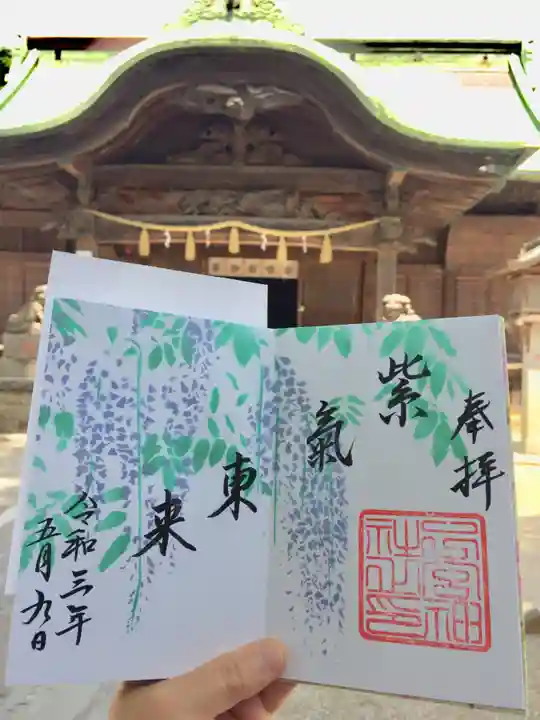 奉拝
紫氣東来
令和三年
五月九日